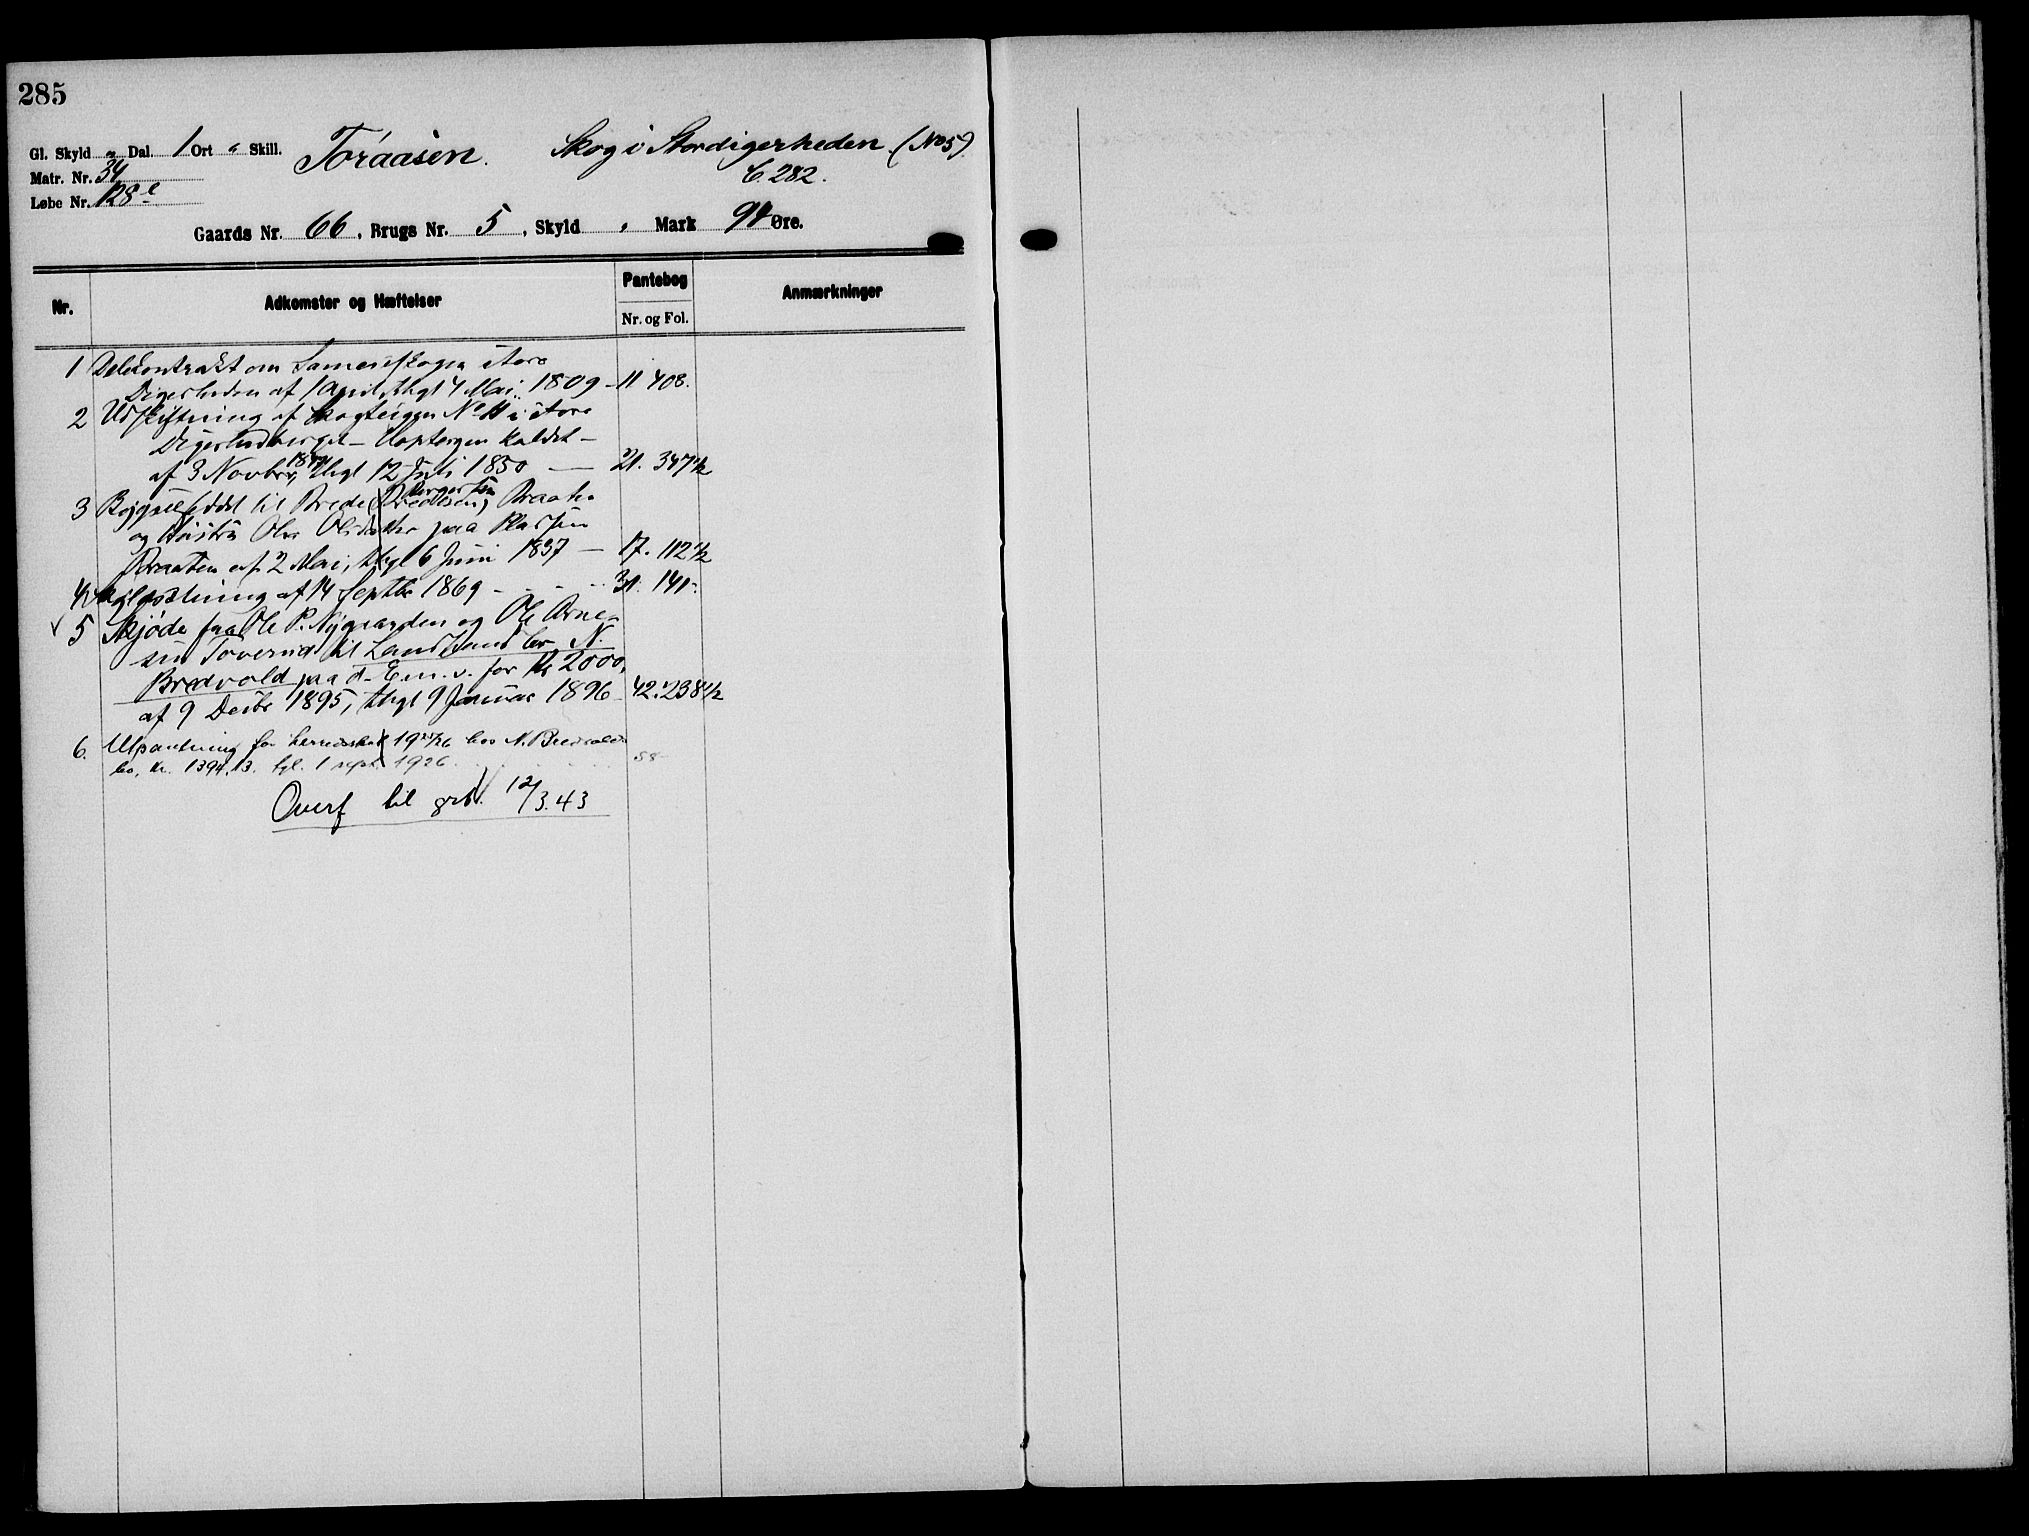 285
Gl. Skyld " Dal. 1 Ort " Skill. Toraasen. Skog i Stordigerheden. (No 5)
Matr. Nr. 34 C. 282.
Løbe Nr. 128 e
Gaards Nr. 66, Brugs Nr. 5, Skyld " Mark 94 Øre.
Nr. Adkomster og Hæftelser Pantebog Anmærkninger
Nr. og Fol.
1 Delekontrakt om Sameieskogen i store
Digerheden af 1 April, thgl 4 Mai 1809 - 11. 408.
2 Udskiftning af Skogteigen No 11 i store
Digerhedberget - kaldet -
af 3 Novbr, thgl 12 Juli 1850 — 21. 347 1/2
3 Bøgselseddel til Brede Braaten
og Hustru Olea Olsdatter paa Pladsen
Braaten af 2 Mai, thgl 6 Juni 1837 — 17. 112 1/2
4 af 14 Septbr 1869 - 31. 141.
5 Skjøde fra Ole P. Nygaarden og Ole Arne-
sen Toverud til Landhandler N.
Bredvold paa d. E. m. v. for Kr 2000,
af 9 Decbr 1895, thgl 9 Januar 1896 - 42. 238 1/2
6. Utpantning for herredsskat 19 25/26 hos N. Bredvolds
bo, kr. 1394.13. tgl. 1 sept. 1926. 58
Overf til grb. 12/3.43